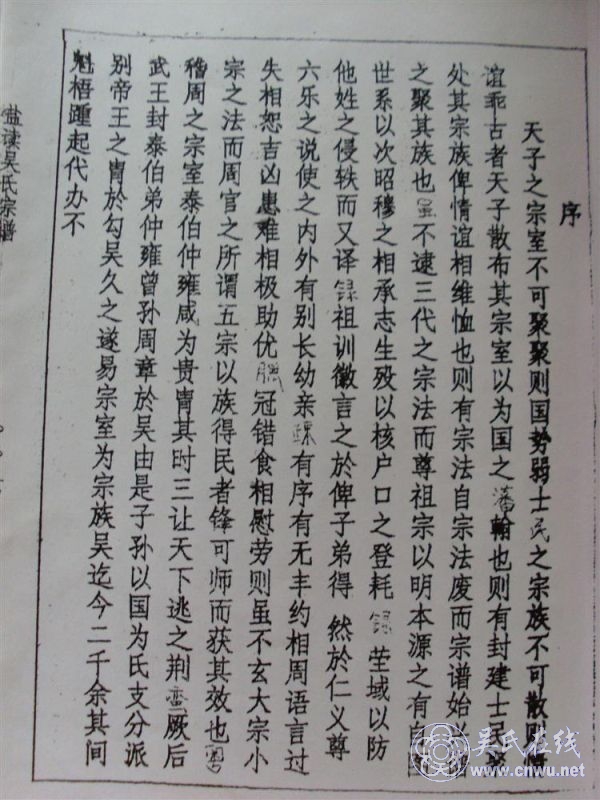 序
天子之宗室不可聚聚则国势弱士民之宗族不可散则情
谊乖古者天子散布其宗室以为国之藩翰也则有封建士民聚
处其宗族俾情谊相维恤也则有宗法自宗法废而宗谱始
之聚其族也虽不逮三代之宗法而尊祖宗以明本源之有自
世系以次昭穆之相承志生殁以核户口之登耗录茔域以防
他姓之侵轶而又译录祖训徽言之於俾子弟得 然於仁义尊
六乐之说使之内外有别长幼亲疎有序有无丰约相周语言过
失相恕吉凶患难相极助优腊冠错食相慰劳则虽不玄大宗小
宗之法而周官之所谓五宗以族得民者锋可师而获其效也
稽周之宗室泰伯仲雍咸为贵胄其时三让天下逃之荆蛮厥后
武王封泰伯弟仲雍曾孙周章於吴由是子孙以国为氏支分派
别帝王之胄於勾吴久之遂易宗室为宗族吴迄今二千余其间
魁梧踵起代办不
盐渎吴氏宗谱
吴氏在线
www.cnwu.net